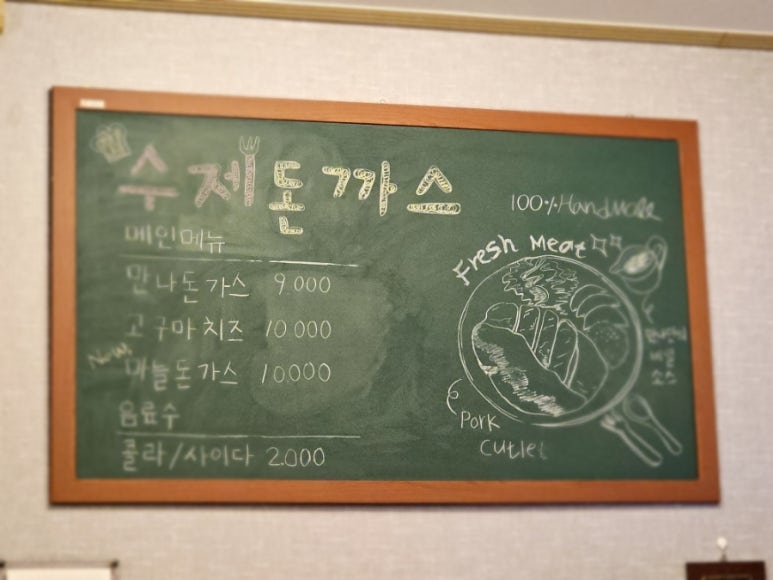 수제돈까스
메인메뉴
만나돈가스 9.000
고구마치즈 10.000
New
마늘돈가스 10.000
음료수
콜라/사이다 2.000
100% Handmade
Fresh Meat
Pork
Cutlet
소스